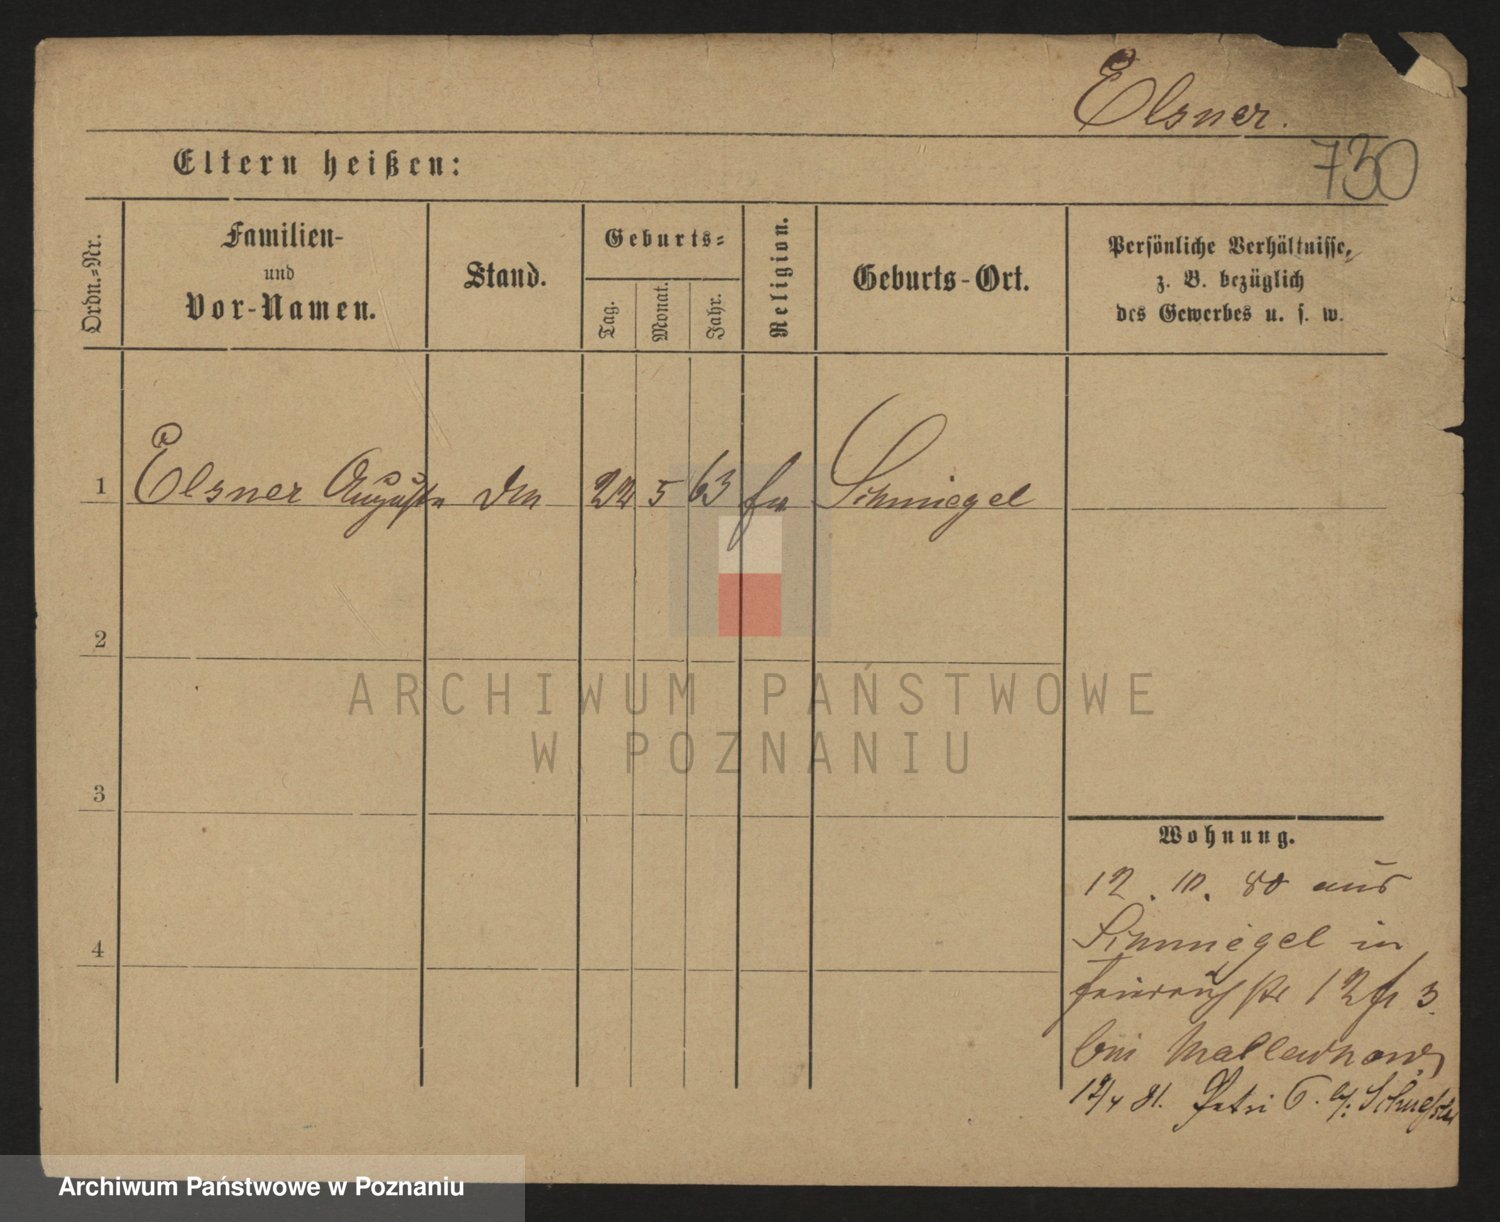 Elsner.
730
Eltern heißen:
Ordn.-Nr.
Familien-
und
Vor-Namen.
Stand.
Geburts-
Tag.
Monat.
Jahr.
Religion.
Geburts-Ort.
Persönliche Verhältnisse,
z. B. bezüglich
des Gewerbes u. s. w.
1 Elsner Auguste 5 63 Schmiegel
2
3
4
Wohnung.
12. 10. 80 aus
Schmiegel in
12 3.
bei
81. Petri 6.
ARCHIWUM PAŃSTWOWE
W POZNANIU
Archiwum Państwowe w Poznaniu